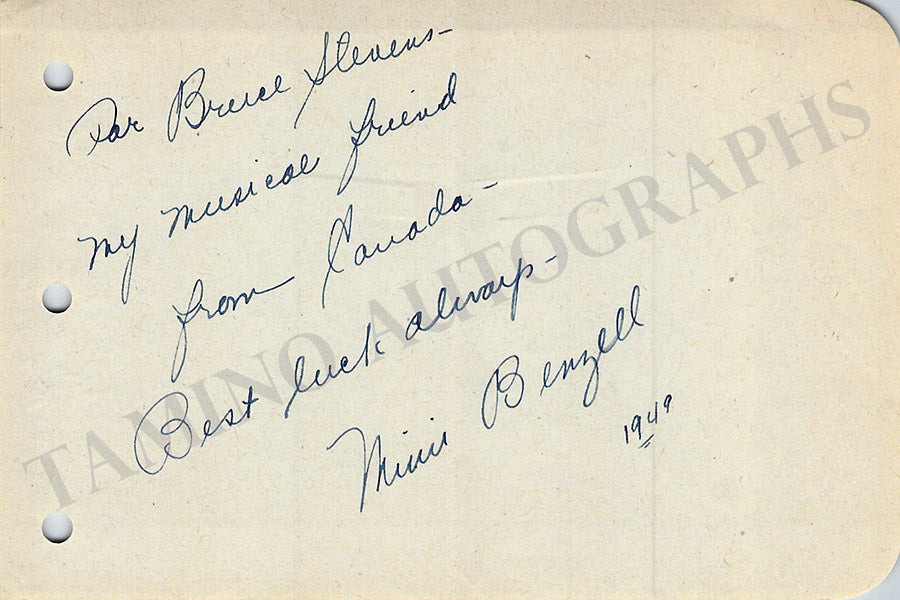 For Bruce Stevens-
My musical friend
from Canada-
Best luck always-
Mimi Benzell
1949
TAMINO AUTOGRAPHS